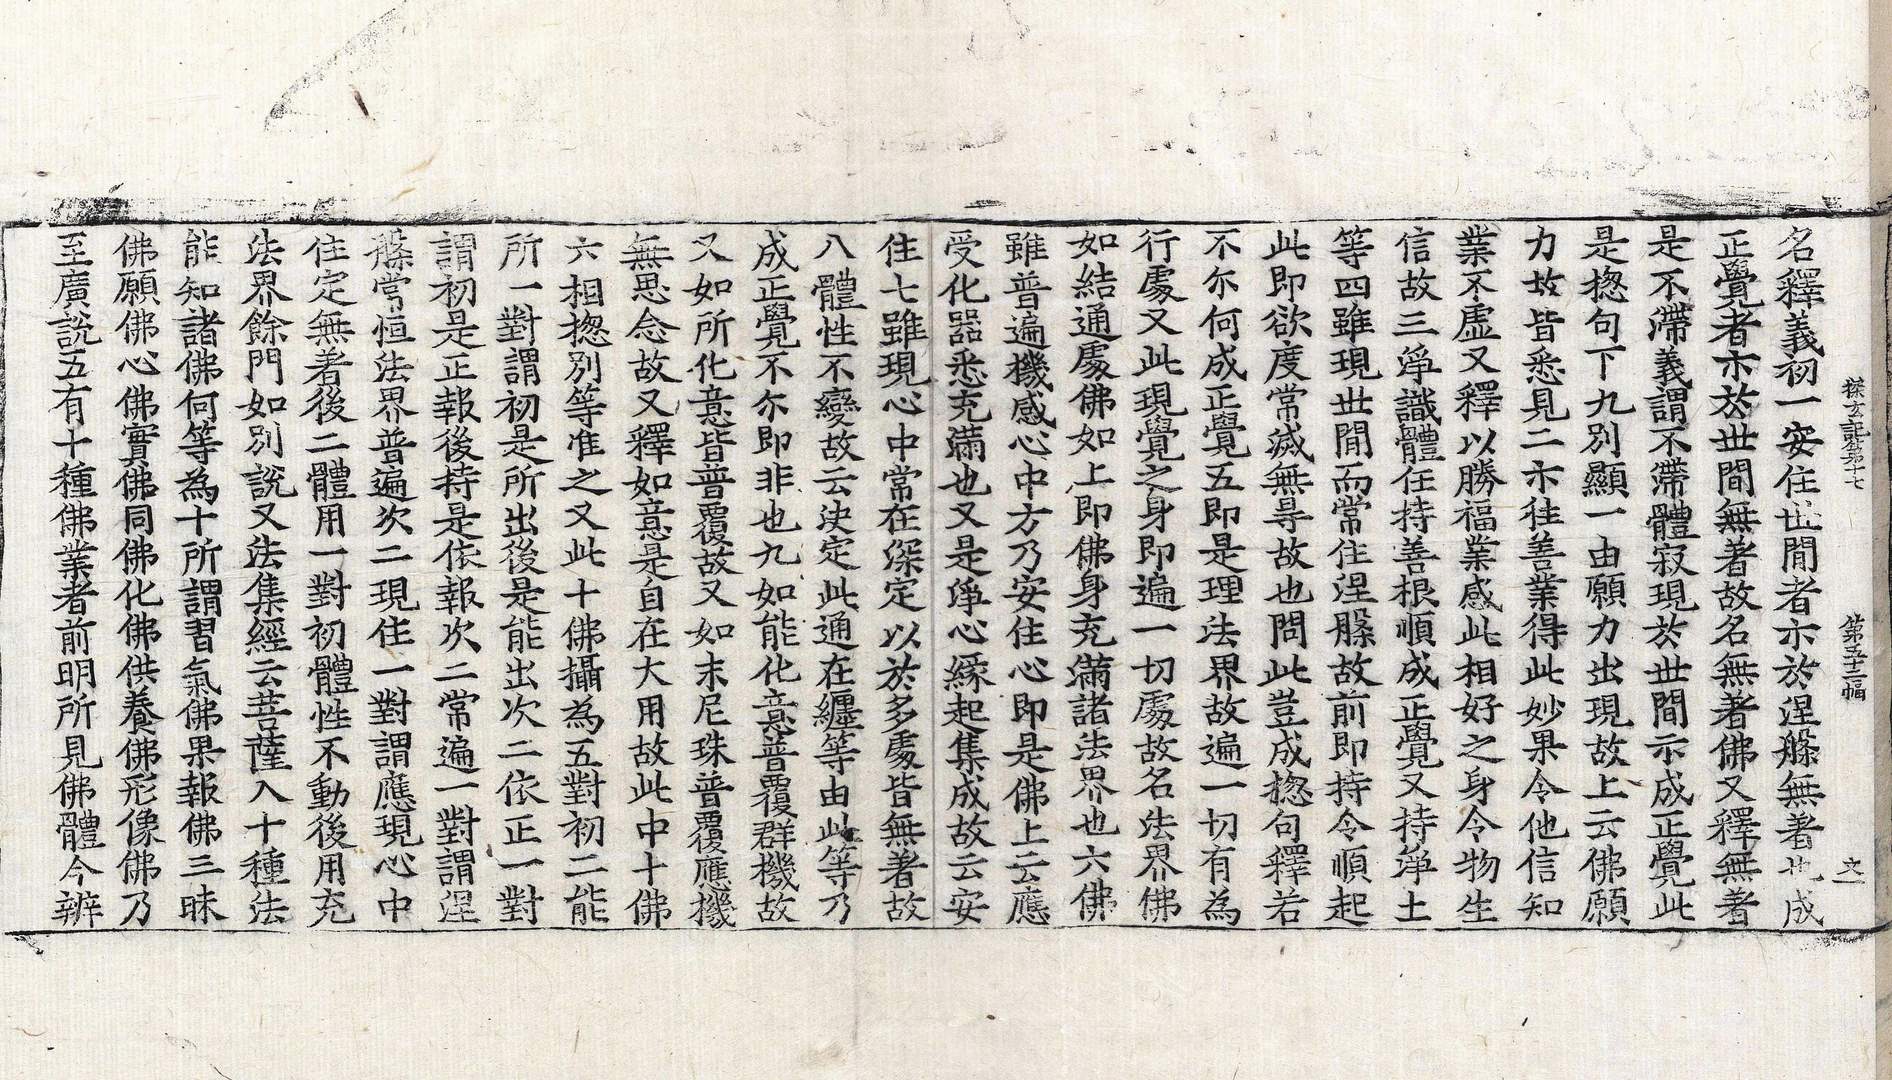 探玄記第十七　第五十二幅　文一
名釋義初一安住世間者亦於涅槃無著也成
正覺者亦於世間無著故名無著佛又釋無著
是不滯義謂不滯體寂現於世間示成正覺此
是揔句下九別顯一由願力出現故上云佛願
力故皆悉見二亦往善業得此妙果令他信知
業不虛又釋以勝福業感此相好之身令物生
信故三淨識體任持善根順成正覺又持淨土
等四雖現世間而常住涅槃故前即持令順起
此即欲度常滅無㝵故也問此豈成揔句釋若
不尒何成正覺五即是理法界故遍一切有為
行處又此現覺之身即遍一切處故名法界佛
如結通處佛如上即佛身充滿諸法界也六佛
雖普遍機感心中方乃安住心即是佛上云應
受化器悉充滿也又是淨心緣起集成故云安
住七雖現心中常在深定以於多處皆無著故
八體性不變故云決定此通在纏等由此等乃
成正覺不尒即非也九如能化意普覆群機故
又如所化意皆普覆故又如末尼珠普覆應機
無思念故又釋如意是自在大用故此中十佛
六相揔別等准之又此十佛攝為五對初二能
所一對謂初是所出後是能出次二依正一對
謂初是正報後持是依報次二常遍一對謂涅
槃常恒法界普遍次二現住一對謂應現心中
住定無著後二體用一對初體性不動後用充
法界餘門如別說又法集經云菩薩入十種法
能知諸佛何等為十所謂習氣佛果報佛三昧
佛願佛心佛實佛同佛化佛供養佛形像佛乃
至廣說五有十種佛業者前明所見佛體今辨